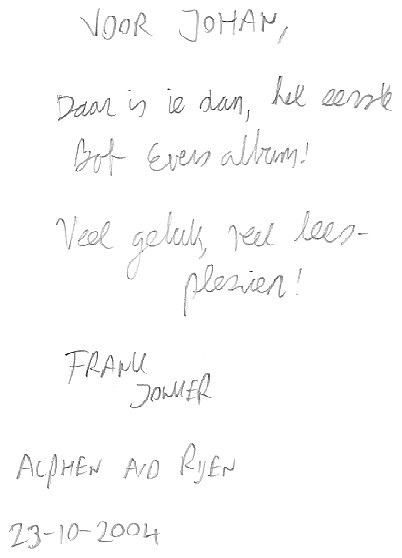 VOOR JOHAN,
Daar is ie dan, het eerste
Bob Evers album!
Veel geluk, veel lees-
plezier!
FRANK
JONKER
ALPHEN A/D RIJN
23-10-2004